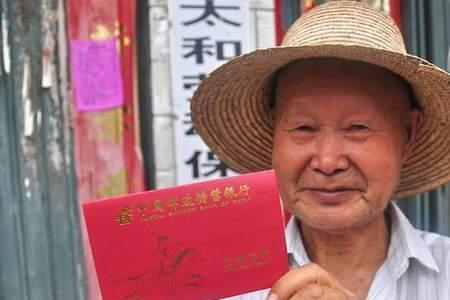 太和劳动保
中国邮政储蓄银行
POSTAL SAVINGS BANK OF CHINA